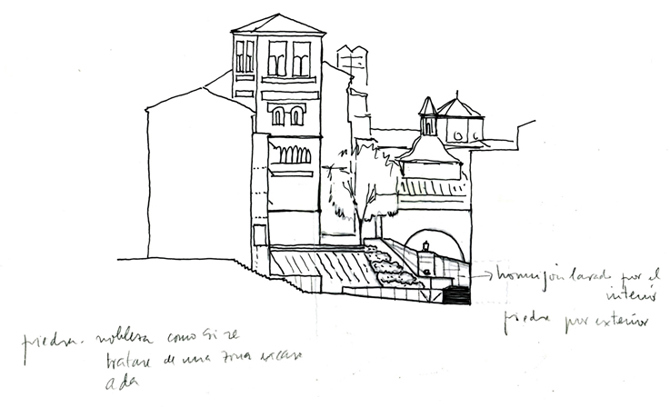 hormigón lavado por el
interior
piedra por exterior
piedra. nobleza como si se
tratase de una zona excav
ada